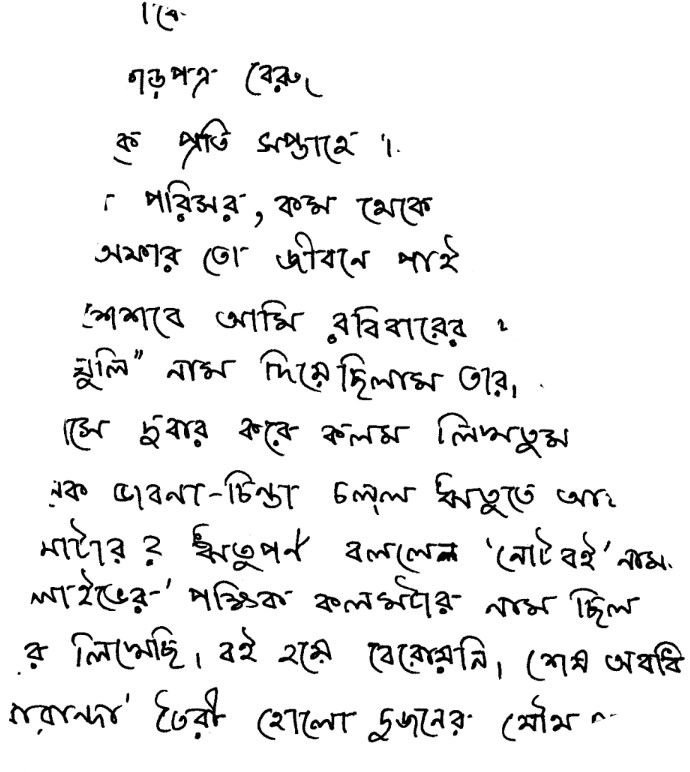 ড়পত্র বেরু
প্রতি সপ্তাহে ।
পরিসর, কম্ম থেকে
অফার তো জীবনে পাই
শৈশবে আমি রবিবারের
খুলি" নাম দিয়েছিলাম তার,
সে দুবার করে কলম লিখতুম
নক ভাবনা-চিন্তা চলল ঋতুতে আ
মাটার র ঋতুপর্ণ বললেন 'নোট বই' নাম
লাইভের' পত্রিকা কলমটার নাম ছিল
র লিখেছি, বই হয়ে বেরোয়নি, শেষ অবধি
বারান্দা' তৈরী হোলো দুজনের যৌথ